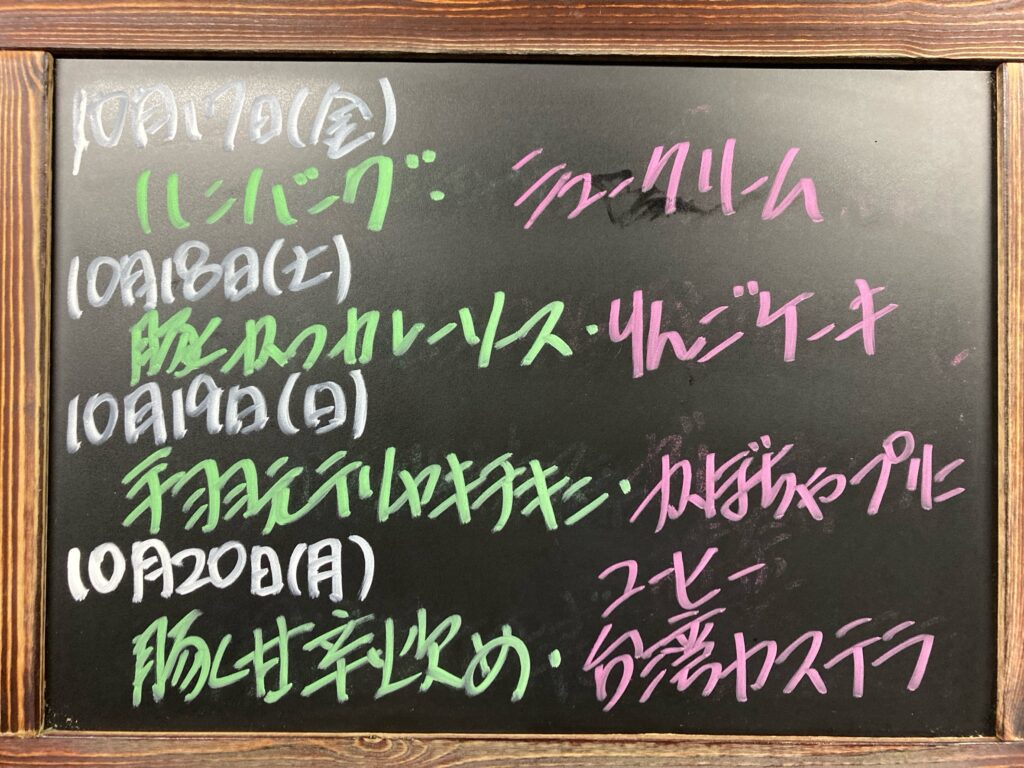 10月17日(金)
ハンバーグ・シュークリーム
10月18日(土)
豚ヒレカツカレーソース・りんごケーキ
10月19日(日)
手羽元テリヤキチキン・かぼちゃプリン
10月20日(月)
コーヒー
豚ヒレ甘辛炒め・台湾カステラ